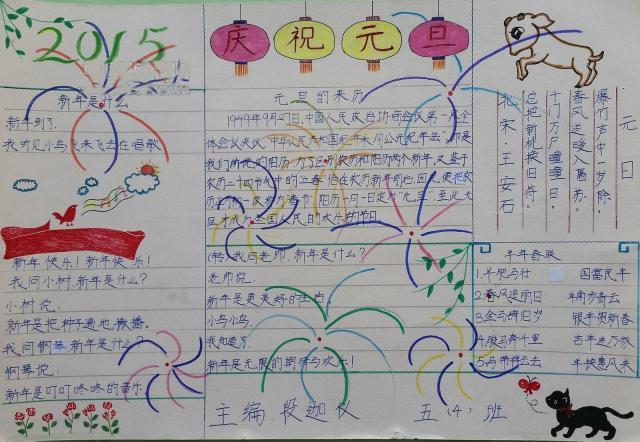 2015
庆祝元旦
新年是什么
新年到了,
我听见小鸟飞来飞去在唱歌
新年快乐!新年快乐!
我问小树,新年是什么?
小树说,
新年是把种子遍地撒播。
我问钢琴,新年是什么?
钢琴说,
新年是叮叮咚咚的音乐
元旦的来历
1949年9月27日,中国人民政治协商会议第一届全
体会议决议"中华人民共和国纪年采用公元纪年法",即是
我们所说的阳历,为了区别农历和阳历两个新年,又鉴于
农历二十四节气中的"立春"恰在农历新年前后,因此便把农
历正月初一改称为"春节",阳历一月一日定为"元旦",至此元
旦才成为全国人民的欢乐节日
(转)我问老师,新年是什么?
老师说,
新年是更美好的生活
小鸟小鸟,
我知道了,
新年是无限的期待与欢乐!
元日
爆竹声中一岁除,
春风送暖入屠苏。
千门万户曈曈日,
总把新桃换旧符。
北宋·王安石
羊年春联
1.羊肥马壮 国富民丰
2.春风送雨日 羊角步青云
3.金马辞旧岁 银羊贺新春
4.骏马奔千里 吉羊进万家
5.马蹄踏云去 羊挟惠风来
主编,段迦仪 五(4)班